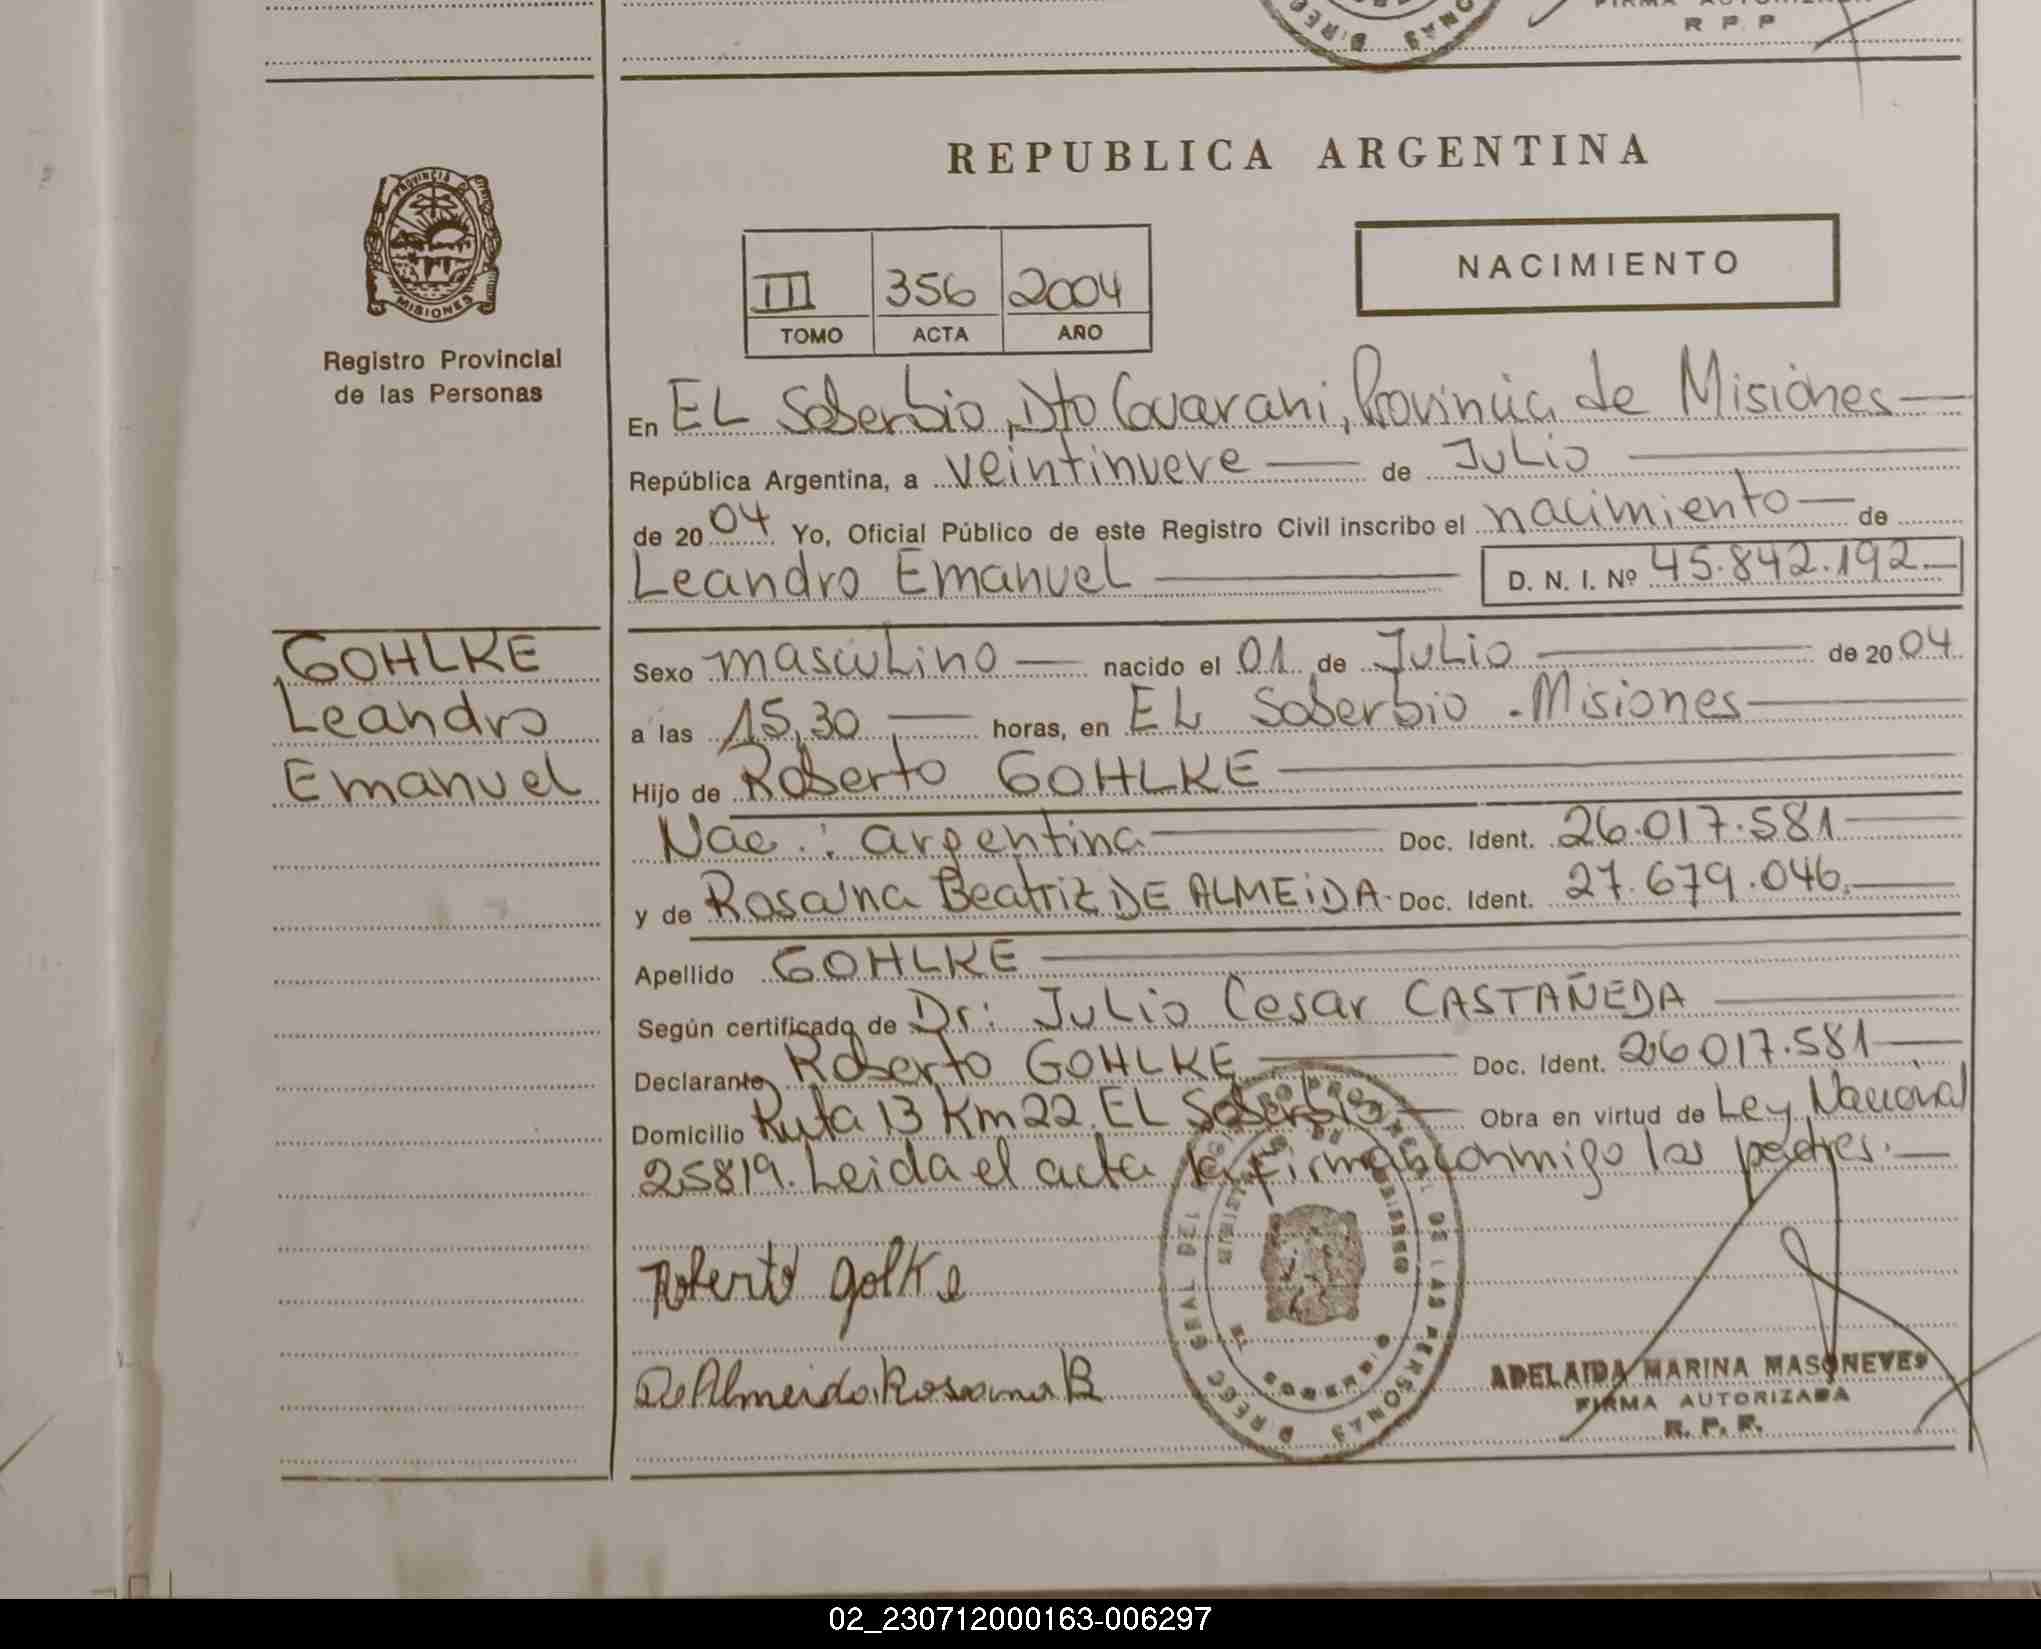 R P P
REPUBLICA ARGENTINA
PROVINCIA DE
MISIONES
Registro Provincial
de las Personas
NACIMIENTO
III 356 2004
TOMO ACTA AÑO
En EL Soberbio, Dto Guarani, Provincia de Misiones
República Argentina, a veintinueve de Julio
de 2004 Yo, Oficial Público de este Registro Civil inscribo el nacimiento de
Leandro Emanuel D. N. I. Nº 45.842.192
GOHLKE
Leandro
Emanuel
Sexo masculino nacido el 01 de Julio de 2004
a las 15,30 horas, en EL Soberbio - Misiones
Hijo de Roberto GOHLKE
Nac: argentina Doc. Ident. 26.017.581
y de Rosana Beatriz DE ALMEIDA Doc. Ident. 27.679.046
Apellido GOHLKE
Según certificado de Dr: Julio Cesar CASTAÑEDA
Declarante Roberto GOHLKE Doc. Ident. 26017.581
Domicilio Ruta 13 Km 22 EL Soberbio Obra en virtud de Ley Nacional
25819. Leida el acta la firman conmigo los padres.
Roberto golke
De Almeida Rosana B
ADELAIDA MARINA MASONEVES
FIRMA AUTORIZADA
R. P. P.
02_230712000163-006297